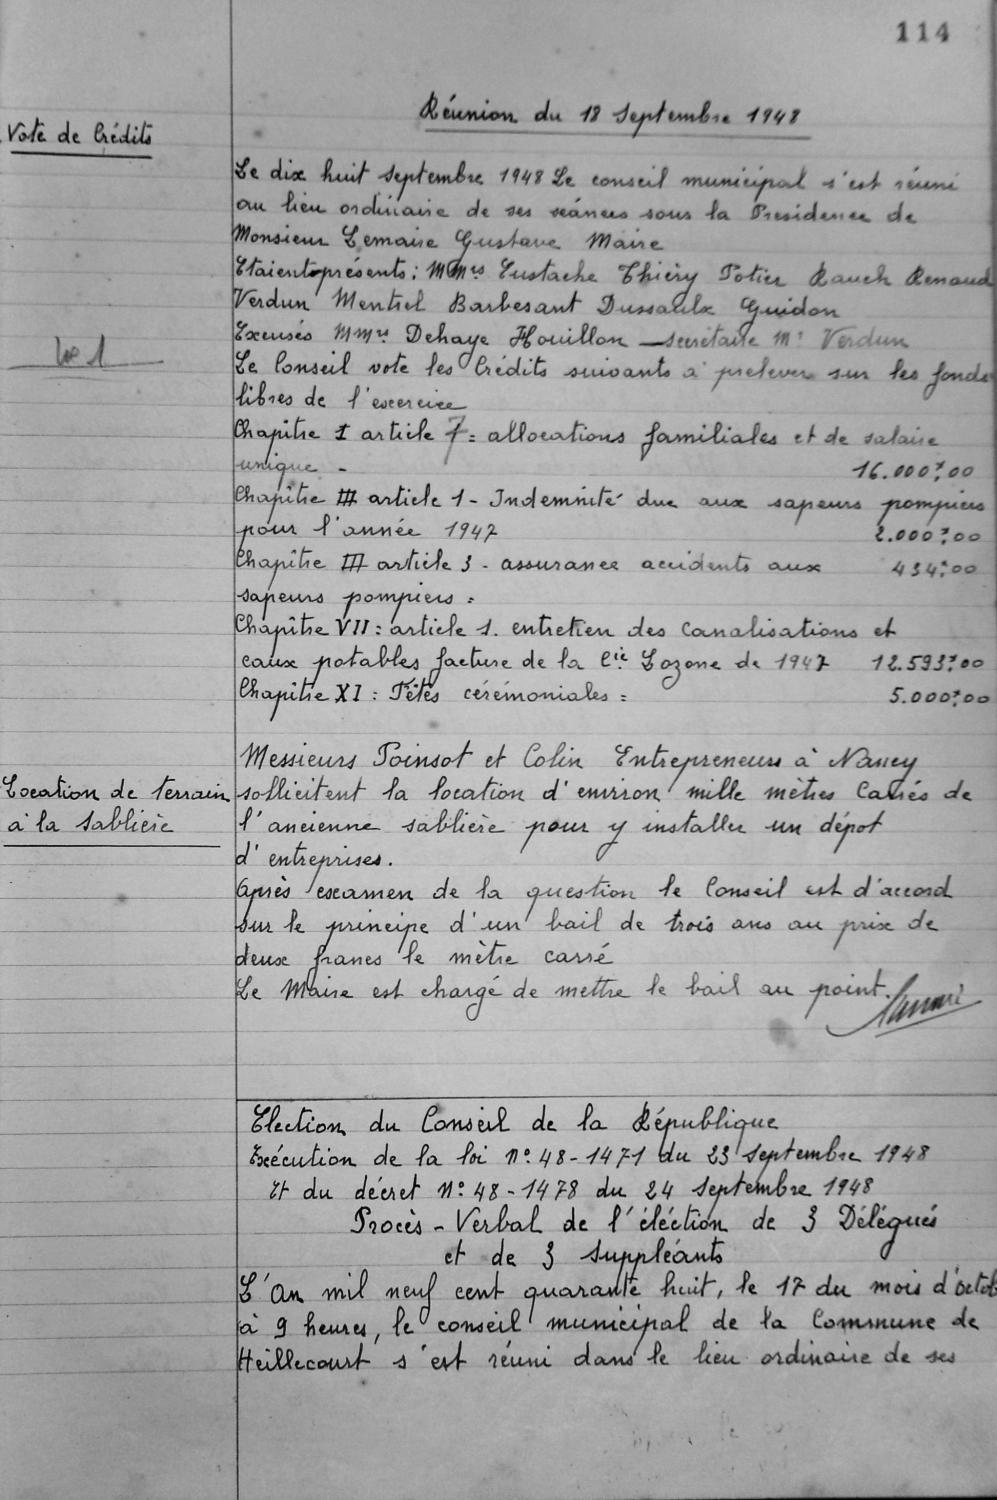 114
Réunion du 18 Septembre 1948
Vote de Crédits
Le dix huit septembre 1948 Le conseil municipal s'est réuni
au lieu ordinaire de ses séances sous la Presidence de
Monsieur Lemaire Gustave Maire
Etaient présents : MMrs Eustache Thiéry Potier Rauch Renaud
Verdun Mentrel Barbesant Dussaulx Guidon
Excusés MMrs Dehaye Houillon _ secrétaire Mr Verdun
Le Conseil vote les Crédits suivants à prelever sur les fonds
libres de l'exercice
Chapitre I article 7 = allocations familiales et de salaire
unique - 16.000f,00
Chapitre III article 1 - Indemnité due aux sapeurs pompiers
pour l'année 1947 2.000f,00
Chapitre III article 3 - assurance accidents aux 434f,00
sapeurs pompiers =
Chapitre VII : article 1. entretien des canalisations et
eaux potables facture de la Cie Lozone de 1947 12.593f,00
Chapitre XI : Fêtes cérémoniales = 5.000f,00
Location de terrain
à la Sablière
Messieurs Poinsot et Colin Entrepreneurs à Nancy
sollicitent la location d'environ mille mètres Carrés de
l'ancienne sablière pour y installer un dépot
d'entreprises.
Après examen de la question le Conseil est d'accord
sur le principe d'un bail de trois ans au prix de
deux francs le mètre carré
Le Maire est chargé de mettre le bail au point.
Election du Conseil de la République
Exécution de la loi N° 48-1471 du 23 Septembre 1948
Et du décret N° 48-1478 du 24 Septembre 1948
Procès-Verbal de l'éléction de 3 Délégués
et de 3 Suppléants
L'An mil neuf cent quarante huit, le 17 du mois d'octob
à 9 heures, le conseil municipal de la Commune de
Heillecourt s'est réuni dans le lieu ordinaire de ses